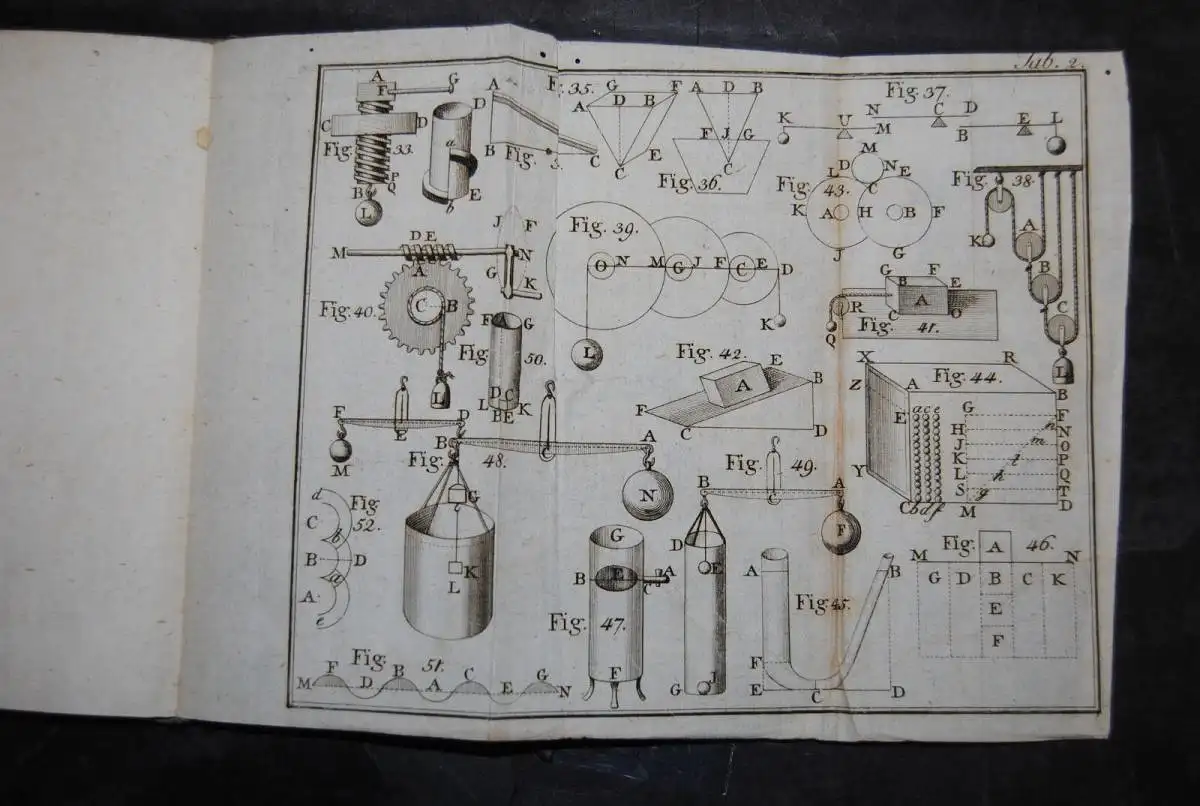 Tab. 2.
Fig. 33.
A
F
G
C
D
B
P
Q
L
D
a
b
E
A
B
C
Fig. 3.
F. 35.
G
F
A
D
B
C
E
Fig. 36.
A
D
B
F
J
G
C
Fig. 37.
K
U
M
N
C
D
B
E
L
Fig. 38.
K
A
B
C
L
Fig. 43.
M
L
D
N
E
C
K
A
H
B
F
J
G
Fig. 39.
O
N
M
G
J
F
C
E
D
L
K
Fig. 40.
M
D
E
N
J
F
G
K
A
C
B
L
Fig. 41.
G
F
B
E
A
C
O
R
Q
Fig. 50.
F
A
G
D
C
L
B
E
K
Fig. 42.
E
A
B
F
C
D
Fig. 44.
X
R
Z
A
B
E
a
c
e
G
F
H
n
N
J
m
O
K
l
P
L
h
Q
S
g
T
Y
C
b
d
f
M
D
Fig. 48.
F
D
E
M
B
A
G
N
K
L
Fig. 49.
B
A
C
F
D
E
G
J
Fig. 52.
d
C
b
B
D
a
A
e
Fig. 47.
G
B
E
A
C
F
Fig. 45.
A
B
F
E
C
D
Fig. 46.
M
A
N
G
D
B
C
K
E
F
Fig. 51.
M
F
D
B
A
C
E
G
N